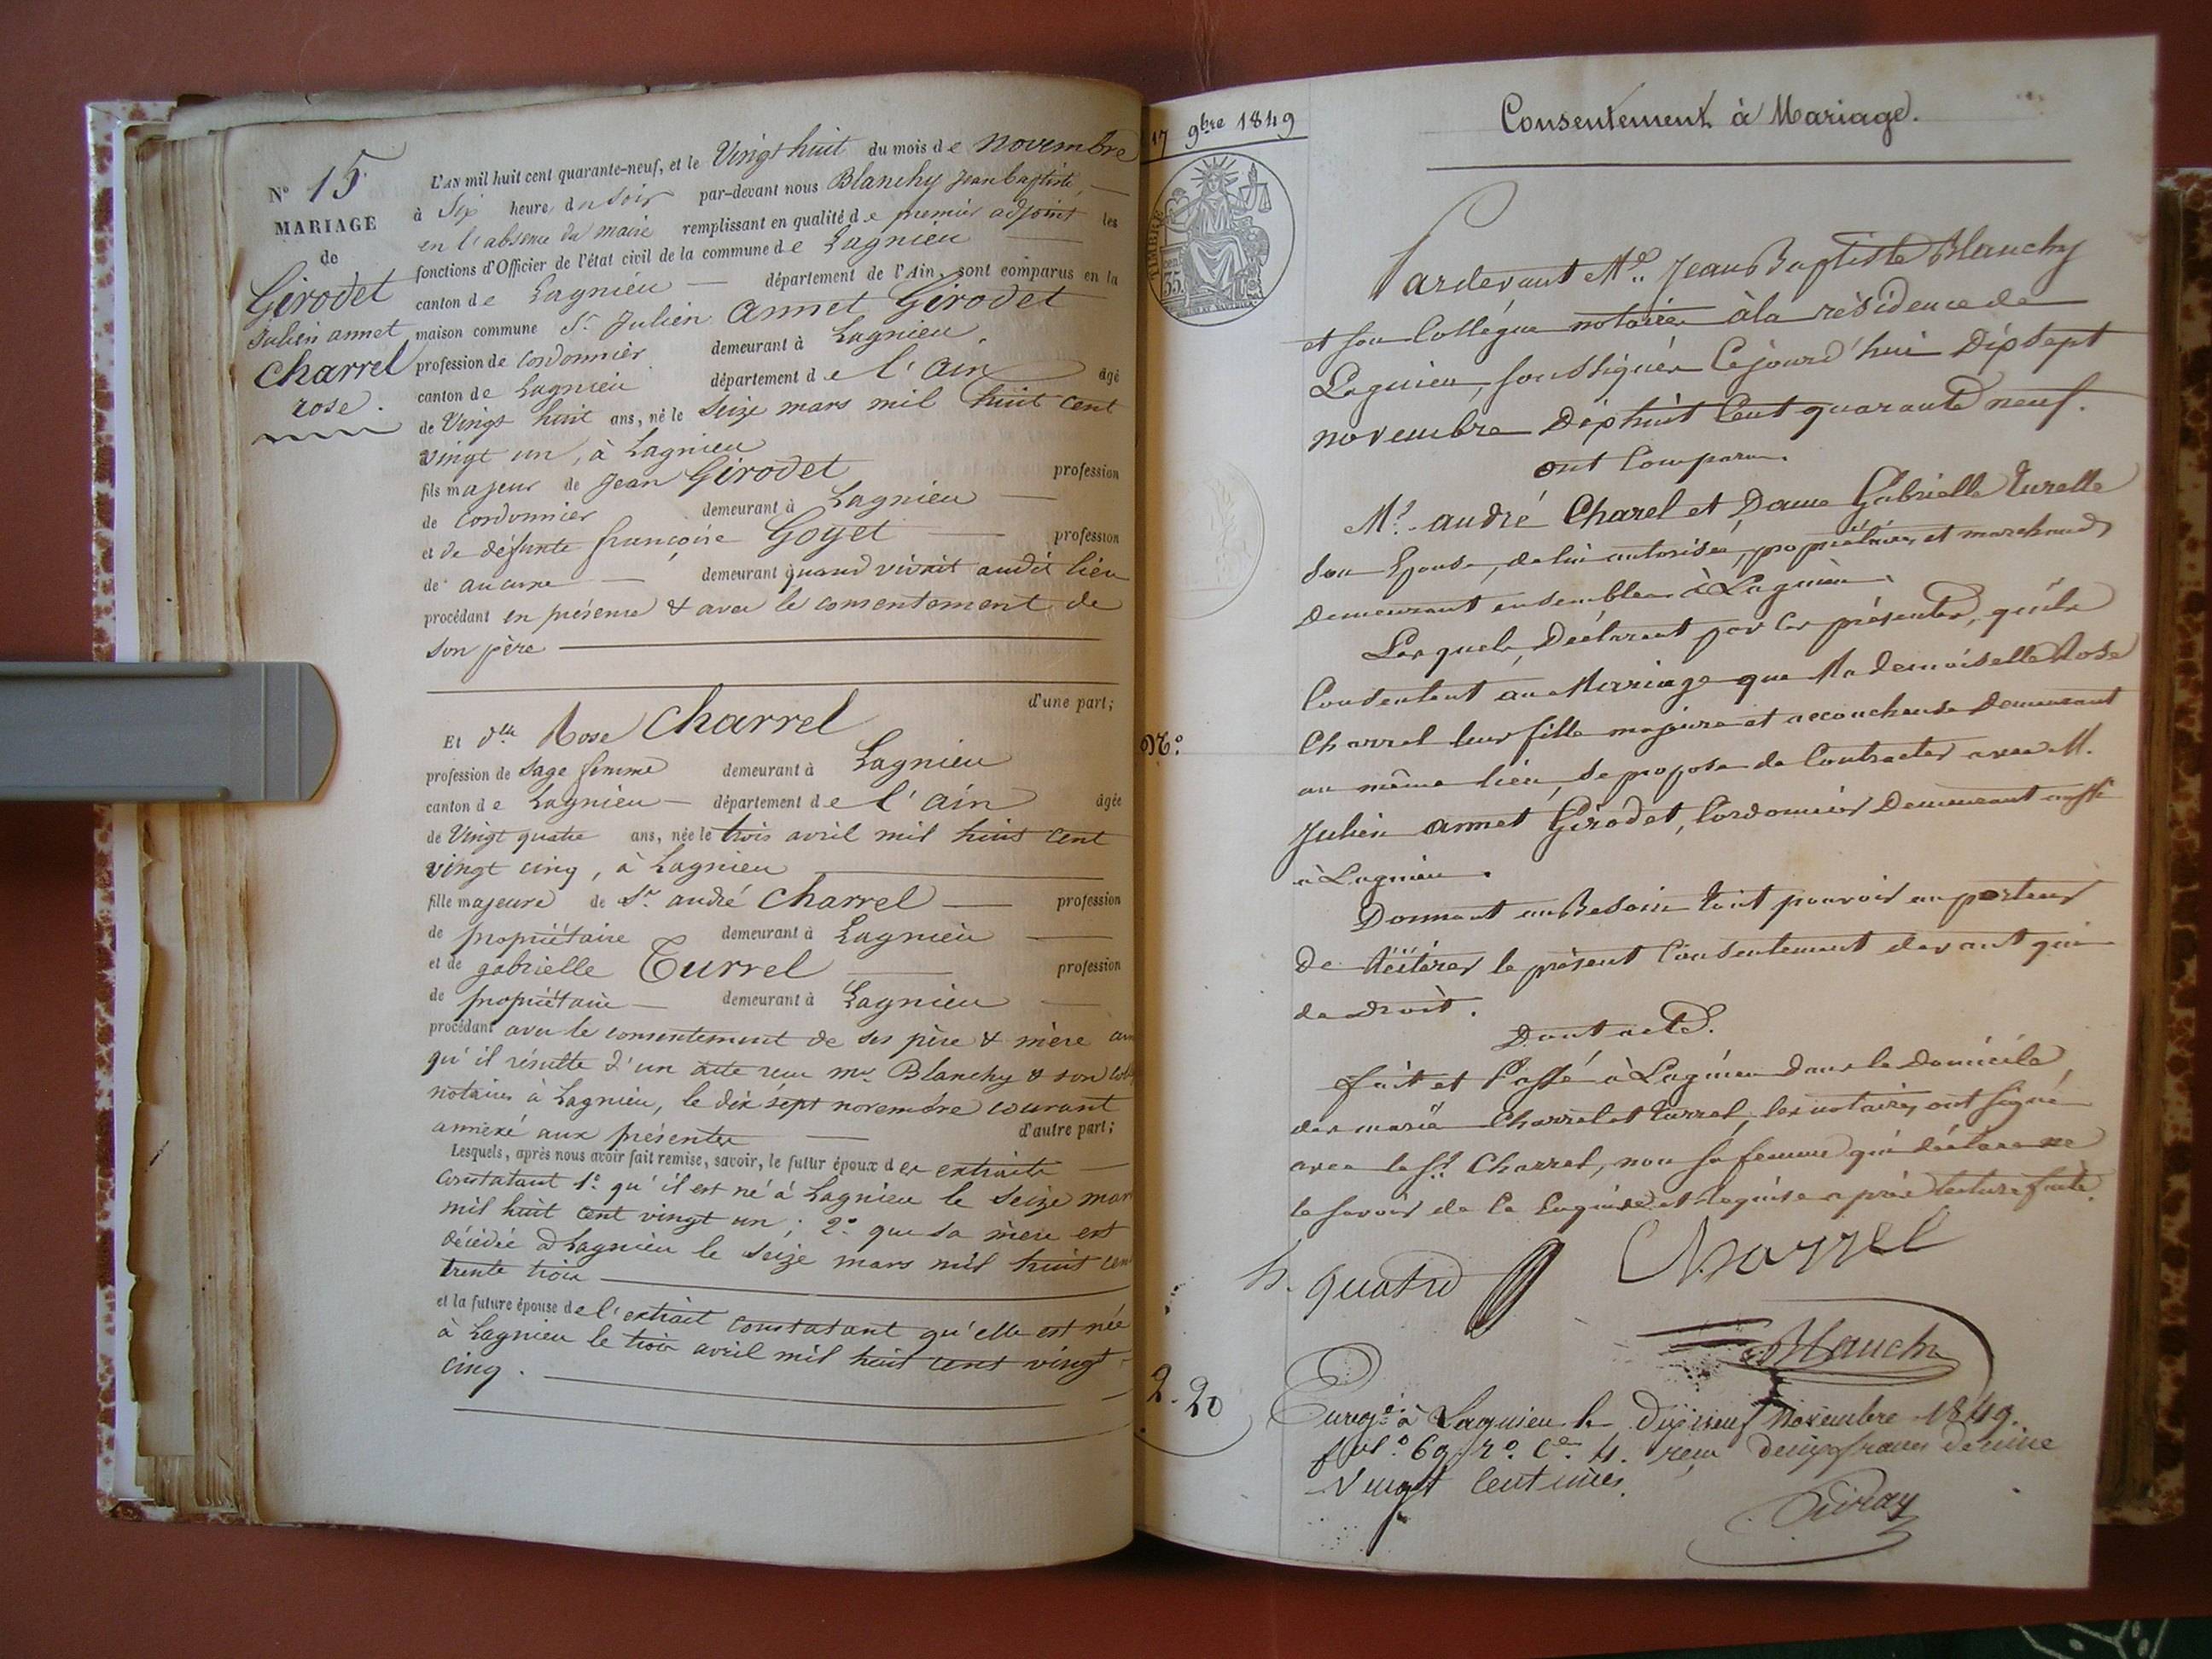 N° 15
MARIAGE
de
Girodet
Julien annet
Charrel
rose.
L'AN mil huit cent quarante-neuf, et le Vingt huit du mois de novembre
à Six heure, du soir par-devant nous Blanchy Jean baptiste,
en l'absence du maire remplissant en qualité de premier adjoint les
fonctions d'Officier de l'état civil de la commune de Lagnieu
canton de Lagnieu département de l'Ain, sont comparus en la
maison commune Sr Julien annet Girodet
profession de cordonnier demeurant à Lagnieu
canton de Lagnieu département de l'ain âgé
de Vingt huit ans, né le seize mars mil huit cent
vingt un, à Lagnieu
fils majeur de Jean Girodet profession
de cordonnier demeurant à Lagnieu
et de défunte françoise Goyet profession
de aucune demeurant quand vivait audit lieu
procédant en présence & avec le consentement de
son père
d'une part;
Et dlle Rose Charrel
profession de sage femme demeurant à Lagnieu
canton de Lagnieu département de l'ain âgée
de Vingt quatre ans, née le trois avril mil huit cent
vingt cinq, à Lagnieu
fille majeure de Sr andré Charrel profession
de propriétaire demeurant à Lagnieu
et de gabrielle Turrel profession
de propriétaire demeurant à Lagnieu
procédant avec le consentement de ses père & mère
qu'il résulte d'un acte reçu me Blanchy & son
notaires à Lagnieu, le dix sept novembre courant
annexé aux présentes d'autre part;
Lesquels, après nous avoir fait remise, savoir, le futur époux des extraits
constatant 1° qu'il est né à Lagnieu le seize mars
mil huit cent vingt un; 2° que sa mère est
décédée à Lagnieu le seize mars mil huit cent
trente trois
et la future épouse de l'extrait constatant qu'elle est née
à Lagnieu le trois avril mil huit cent vingt
cinq.
17 9bre 1849
Consentement à Mariage.
TIMBRE
35
Pardevant Me Jean Baptiste Blanchy
et son Collègue notaires à la résidence de
Lagnieu, soussignés Cejourd'hui Dix sept
novembre Dix huit Cent quarante neuf.
ont Comparu.
Mr. andré Charel et Dame Gabrielle Turelle
son Epouse, de lui autorisée, propriétaires et marchands
demeurant ensemble à Lagnieu.
Lesquels, Déclarent par ces présentes, qu'ils
Consentent au Mariage que Mademoiselle Rose
Charrel leur fille majeure et accoucheuse Demeurant
N°.
au même lieu, se propose de Contracter avec M.
Julien annet Girodet, Cordonnier Demeurant aussi
à Lagnieu.
Donnant au Besoin tout pouvoir au porteur
De réitérer le présent Consentement devant qui
de Droit.
Dont acte.
fait et Passé à Lagnieu dans le Domicile
des mariés Charrel et turrel, les notaires ont signé
avec le Sr. Charrel, non sa femme qui déclare ne
le savoir de ce Enquise et requise après lecture faite.
quatre
Charrel
Blanchy
2. 20
Enregé à Lagnieu le Dix neuf Novembre 1849.
fol.° 69. r° Ce 4. reçu deux francs decime
Vingt Centimes.